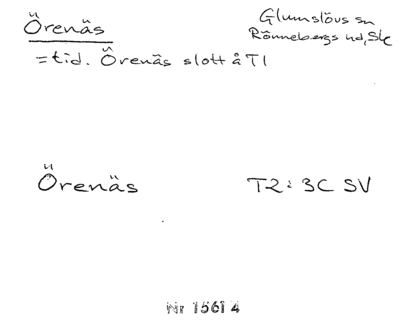 Örenäs
Glumslövs sn
Rönnebergs hd, Sk
= tid. Örenäs slott å T1
Örenäs
T2: 3C SV
Nr 1561 4